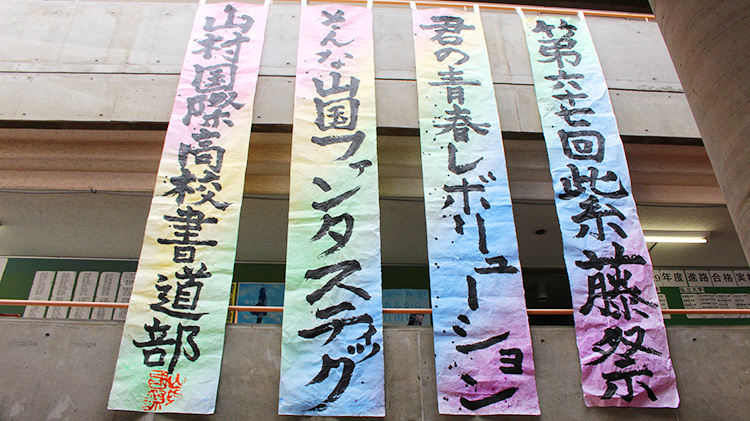 第六十七回紫藤祭
君の青春レボリューション
そんな山国ファンタスティック
山村国際高校書道部
年度進路合格実